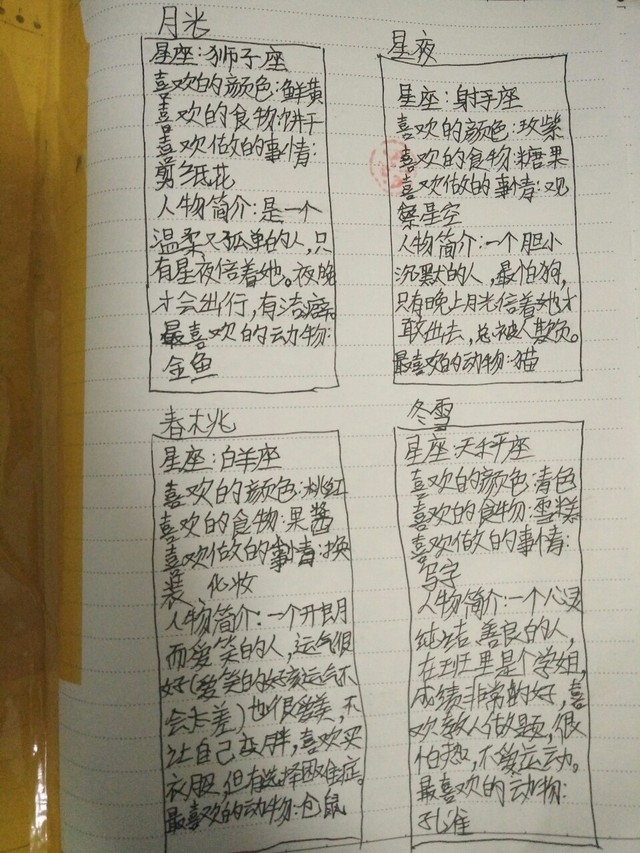 月光
星座:狮子座
喜欢的颜色:鲜黄
喜欢的食物:饼干
喜欢做的事情:
剪纸花
人物简介:是一个
温柔又孤单的人,只
有星夜倍着她。夜晚
才会出行,有治癒
最喜欢的动物:
金鱼
星夜
星座:射手座
喜欢的颜色:玫紫
喜欢的食物:糖果
喜欢做的事情:观
察星空
人物简介:一个胆小
沉默的人,最怕狗,
只有晚上月光倍着她才
敢出去,总被人欺负。
最喜欢的动物:猫
春桃
星座:白羊座
喜欢的颜色:桃红
喜欢的食物:果酱
喜欢做的事情:换
装、化妆
人物简介:一个开朗
而爱笑的人,运气很
好(爱笑的女孩运气不
会太差)也很爱美,不
让自己变胖,喜欢买
衣服,但有选择困难症。
最喜欢的动物:仓鼠
冬雪
星座:天秤座
喜欢的颜色:青色
喜欢的食物:雪糕
喜欢做的事情:
写字
人物简介:一个心灵
纯洁、善良的人,
在班里是个学姐,
成绩非常的好,喜
欢教人做题,很
怕热,不爱运动。
最喜欢的动物:
孔雀